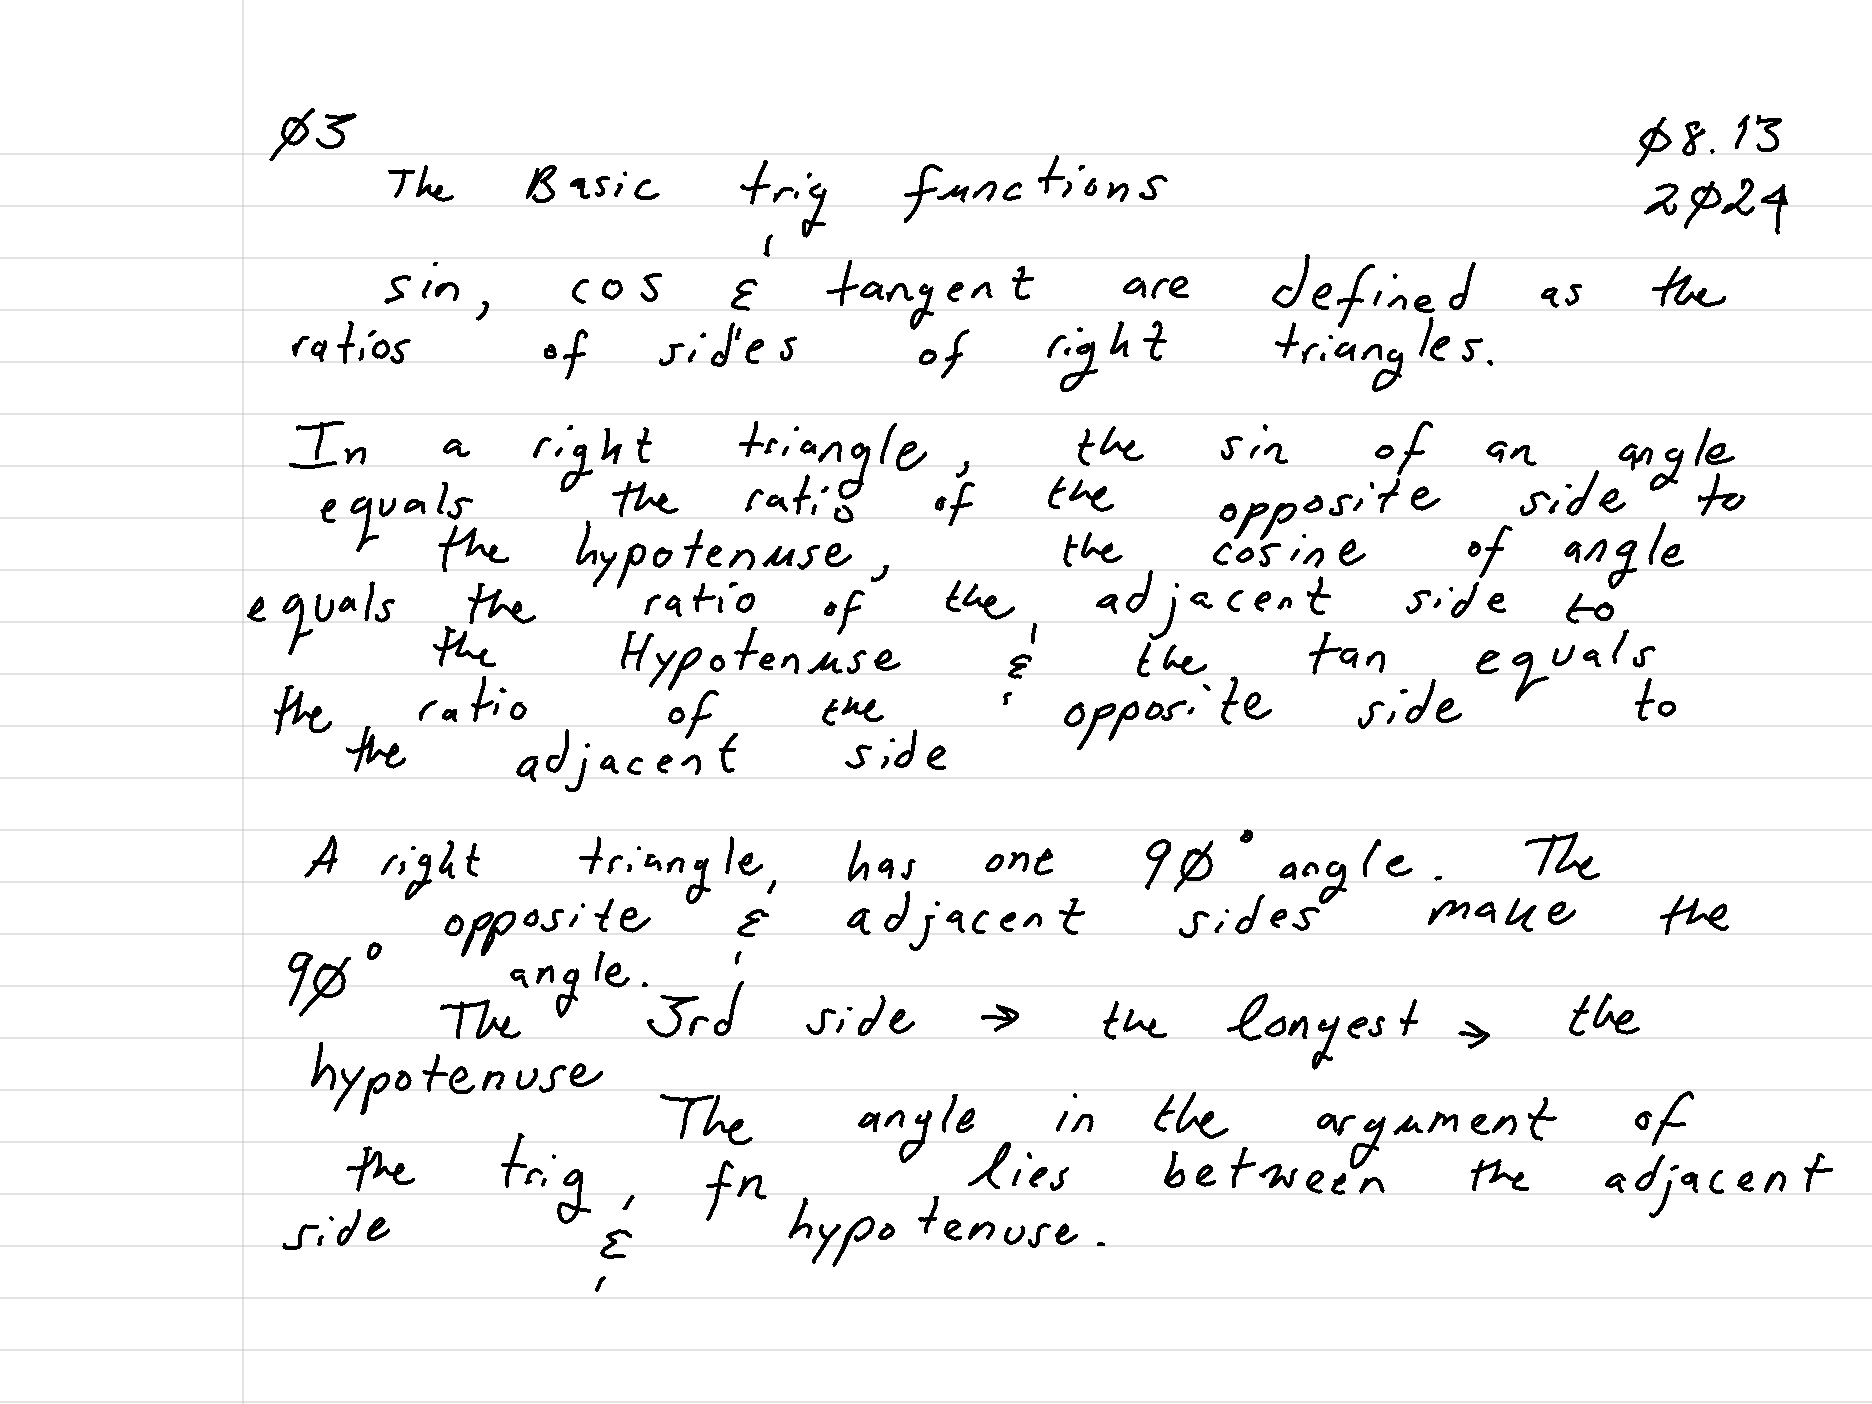 Ø3
Ø8.13
The Basic trig functions
2Ø24
sin, cos & tangent are defined as the
ratios of sides of right triangles.
In a right triangle, the sin of an angle
equals the ratio of the opposite side to
the hypotenuse, the cosine of angle
equals the ratio of the adjacent side to
the Hypotenuse & the tan equals
the ratio of the opposite side to
the adjacent side
A right triangle, has one 9Ø° angle. The
opposite & adjacent sides make the
9Ø° angle.
The 3rd side → the longest → the
hypotenuse
The angle in the argument of
the trig fn lies between the adjacent
side & hypotenuse.